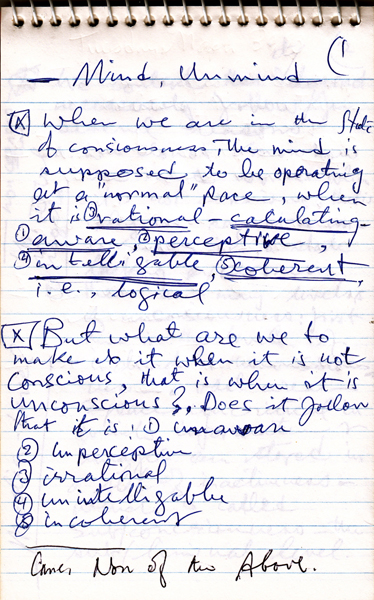 (1
— Mind, Unmind
[X] When we are in the state
of consiousness, The mind is
supposed to be operating
at a "normal" pace, when
it is ③rational – calculating-
①aware, ②perceptive,
④intelligable, ⑤coherent,
i.e., logical
[X] But what are we to
make of it when it is not
conscious, that is when it is
unconscious?, Does it follow
that it is: ① unaware
② imperceptive
③ irrational
④ unintelligable
⑤ incoherent
Non of the Above.